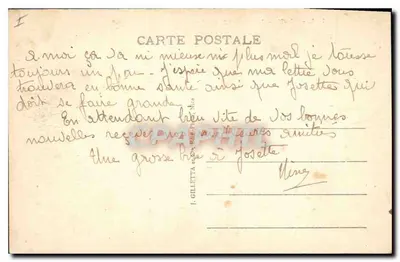 I
CARTE POSTALE
a moi ça va ni mieux ni plus mal je tousse
toujours un peu - J'espère que ma lettre vous
trouvera en bonne santé ainsi que Josette qui
doit se faire grande.
En attendant bien vite de vos bonnes
nouvelles recevez nos meilleures amitiés
Une grosse bise à Josette
Nine
J. GILLETTA